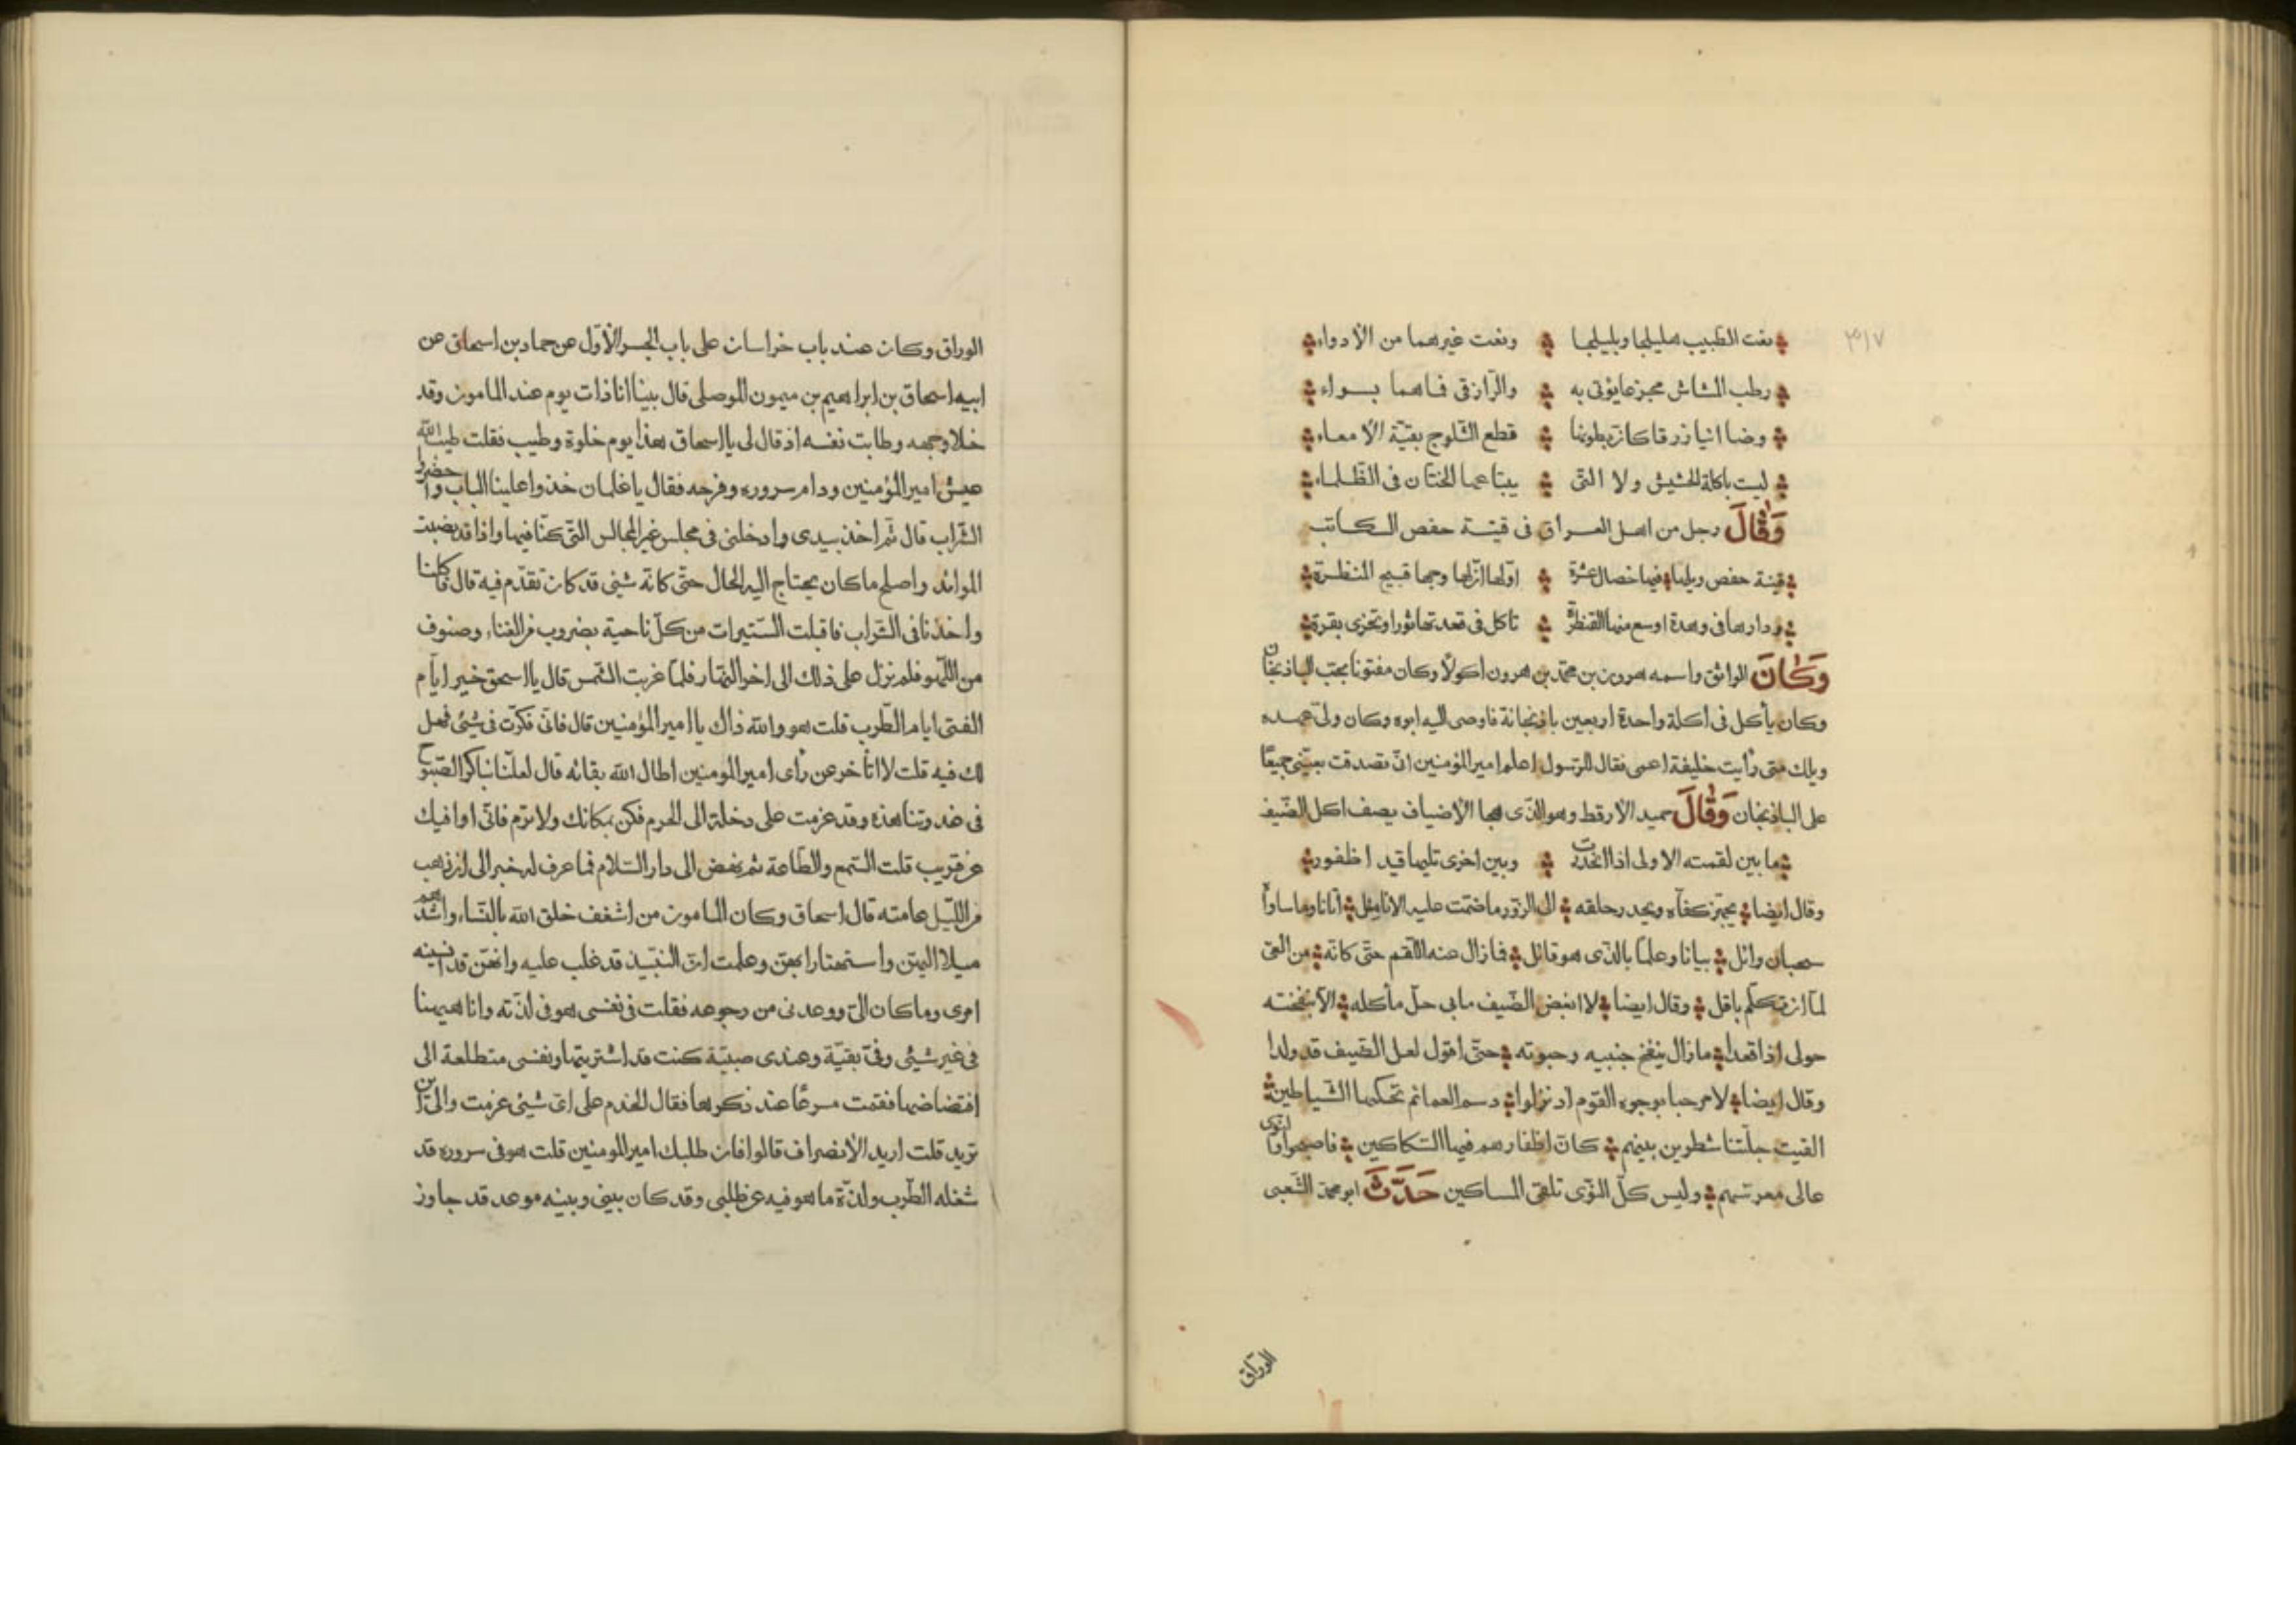 ٣١٧
نعت الطبيب هليلجا وبليلجا ونعت غيرهما من الأدواء
رطب المشاش مجزعا يؤتى به والرازقى فما هما بسواء
وضا انيا زرقا كان بطونها قطع الثلوج بقية الامعاء
ليست باكلة الحشيش ولا التى يبتاعها الختان فى الظلماء
وَقَالَ رجل من اهل العراق فى قينة حفص الكاتب
قينة حفص ويلها فيها خصال عشرة اولها ان لها وجها قبيح المنظرة
ودارها فى وهدة اوسع منها القنطرة تاكل فى قعدتها ثورا وتخرى بقرة
وَكَانَ الواثق واسمه هرون بن محمد بن هرون اكولا وكان مفتونا بحب الباذنجان
وكان يأكل فى اكلة واحدة اربعين باذنجانة فاوصى اليه ابوه وكان ولى عهده
ويلك متى رأيت خليفة اعمى فقال للرسول اعلم امير المؤمنين انى تصدقت بعينى جميعا
على الباذنجان وَقَالَ حميد الارقط وهو الذى هجا الأضياف يصف اكل الضيف
ما بين لقمته الاولى اذا انحدرت وبين اخرى تليها قيد اظفور
وقال ايضا يجهز كفاه ويحدر حلقه الى الزور ما ضمت عليه الانامل اتانا وما ساواه
سحبان وائل بيانا وعلما بالذى هو قائل فما زال عنه اللقم حتى كانه من العى
لما ان تكلم باقل وقال ايضا لا ابغض الضيف ما بى حل مأكله الا بنفخته
حولى اذا قعدا ما زال ينفخ جنبيه وحبوته حتى اقول لعل الضيف قد ولدا
وقال ايضا لا مرحبا بوجوه القوم اذ نزلوا دسم العمائم تحكيها الشياطين
القيت جلتنا شطرين بينهم كان اظفارهم فيها السكاكين فاصبحوا والنوى
عالى معرسهم وليس كل النوى تلقى المساكين حَدَّثَ ابو محمد الشعبى
الوراق
الوراق وكان عند باب خراسان على باب الجسر الأول عن حماد بن اسحاق عن
ابيه اسحاق بن ابراهيم بن ميمون الموصلى قال بينا انا ذات يوم عند المامون وقد
خلا وجهه وطابت نفسه اذ قال لى يا اسحاق هذا يوم خلوة وطيب فقلت طيب الله
عيش امير المؤمنين ودام سروره وفرحه فقال يا غلمان خذوا علينا الباب واحضروا
الشراب قال ثم اخذ بيدى وادخلنى فى مجلس غير المجالس التى كنا فيها واذا قد نصبت
الموائد واصلح ما كان يحتاج اليه الحال حتى كانه شئ قد كان تقدم فيه قال فاكلنا
واخذنا فى الشراب فاقبلت الستيرات من كل ناحية بضروب من الغناء وصنوف
من اللهو فلم نزل على ذلك الى اخر النهار فلما غربت الشمس قال يا اسحق خير ايام
الفتى ايام الطرب قلت هو والله ذاك يا امير المؤمنين قال فانى فكرت فى شئ فهل
لك فيه قلت لا اتأخر عن رأى امير المومنين اطال الله بقائه قال لعلنا نباكر الصبوح
فى غدوتنا هذه وقد عزمت على دخلة الى الحرم فكن بمكانك ولا ترم فانى اوافيك
عن قريب قلت السمع والطاعة ثم نهض الى دار السلام فما عرف له خبر الى ان ذهب
من الليل عامته قال اسحاق وكان المامون من اشغف خلق الله بالنساء واشدهم
ميلا اليهن واستهتارا بهن وعلمت ان النبيذ قد غلب عليه وانهن قد انسينه
امرى وما كان الى ووعدنى من رجوعه فقلت فى نفسى هو فى لذته وانا ههنا
فى غير شئ وفى بقية وعندى صبية كنت قد اشتريتها ونفسى متطلعة الى
افتضاضها فقمت مسرعا عند ذكرها فقال الخدم على اى شئ عزمت والى اين
تريد قلت اريد الأنصراف قالوا فان طلبك امير المومنين قلت هو فى سروره قد
شغله الطرب ولذة ما هو فيه عن طلبى وقد كان بينى وبينه موعد قد جاوز